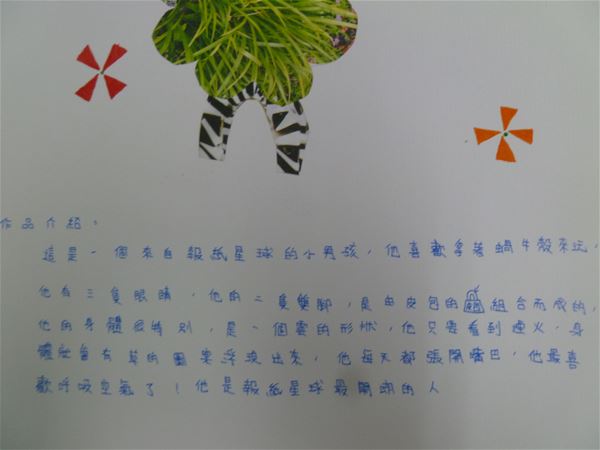 作品介紹：
這是一個來自報紙星球的小男孩，他喜歡拿著蝸牛殼來玩，
他有三隻眼睛，他的二隻雙腳，是由皮包的組合而成的，
他的身體很特別，是一個雲的形狀，他只要看到火，身
體就會有草的圖案浮現出來，他每天都張開嘴巴，他最喜
歡呼吸空氣了！他是報紙星球最開朗的人